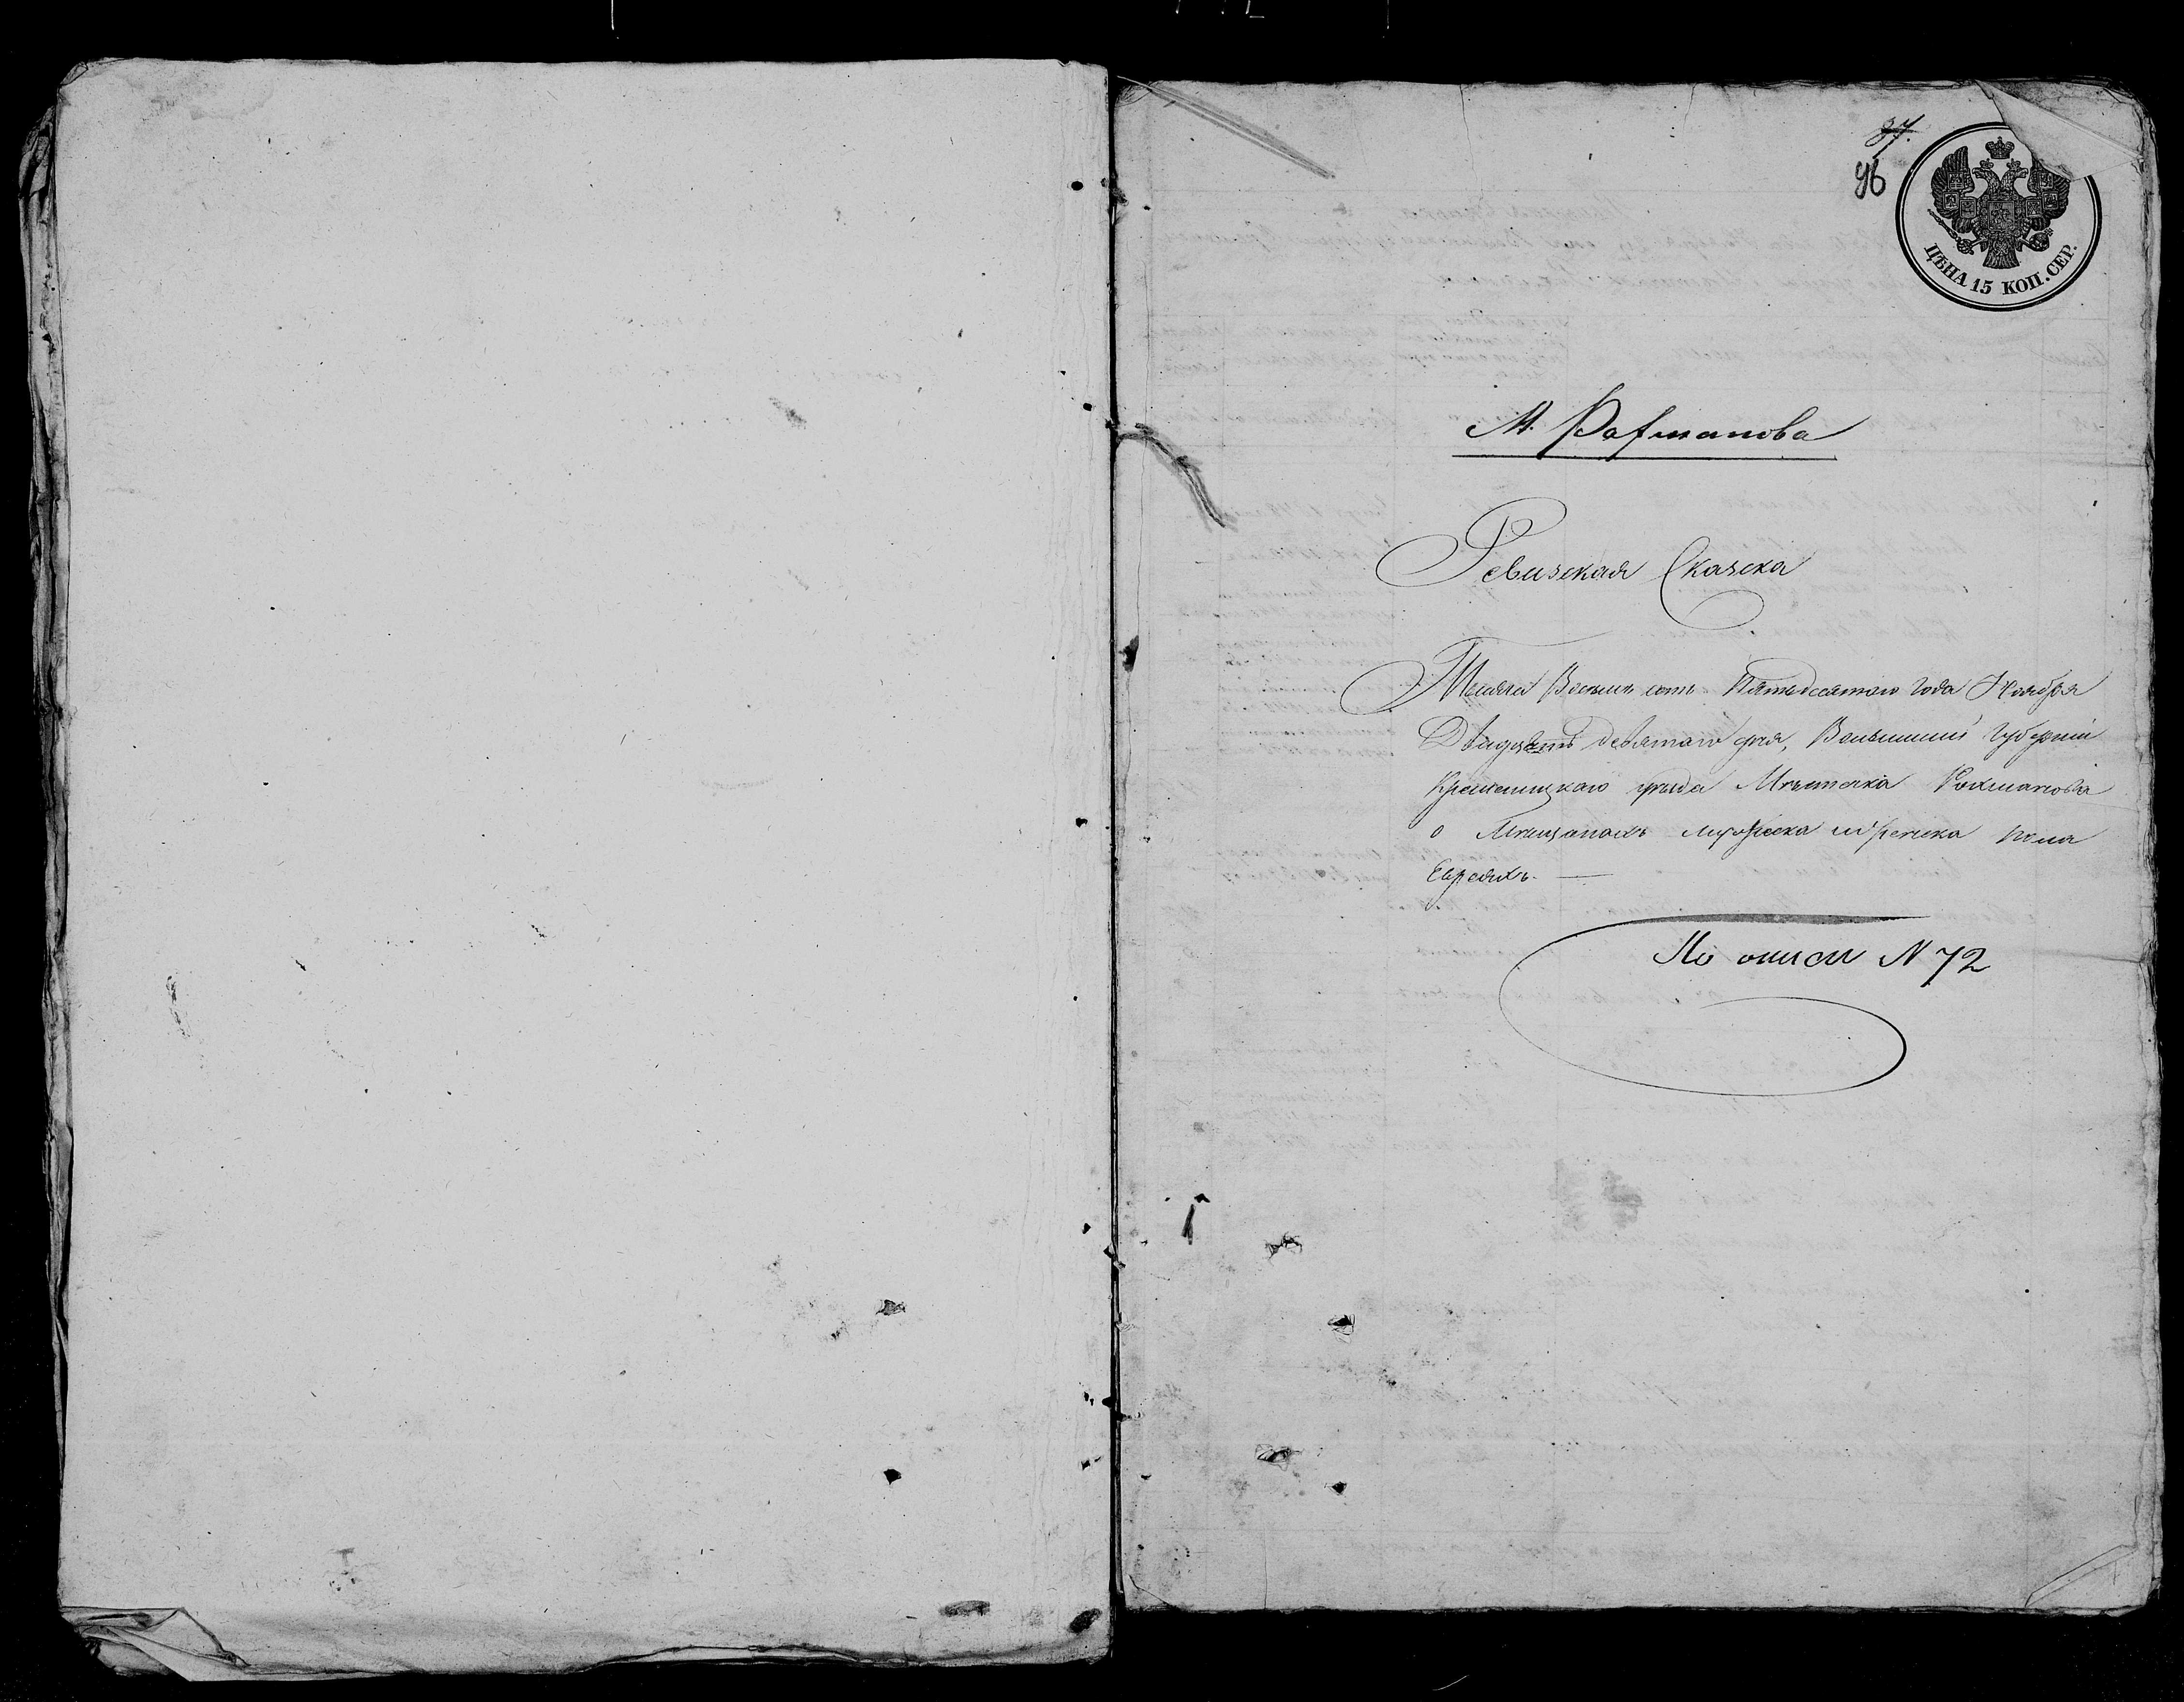 37.
96
ЦѢНА 15 КОП. СЕР.
М. Рахманова
Ревизская Сказка
Тысяча Восемь сотъ Пятьдесятаго года Ноября
Двадцать девятаго дня, Волынской Губерніи
Кременецкаго уѣзда Мѣстечка Рахманова
о Мѣщанахъ мужеска и женска пола
Евреяхъ. —
По описи N 72